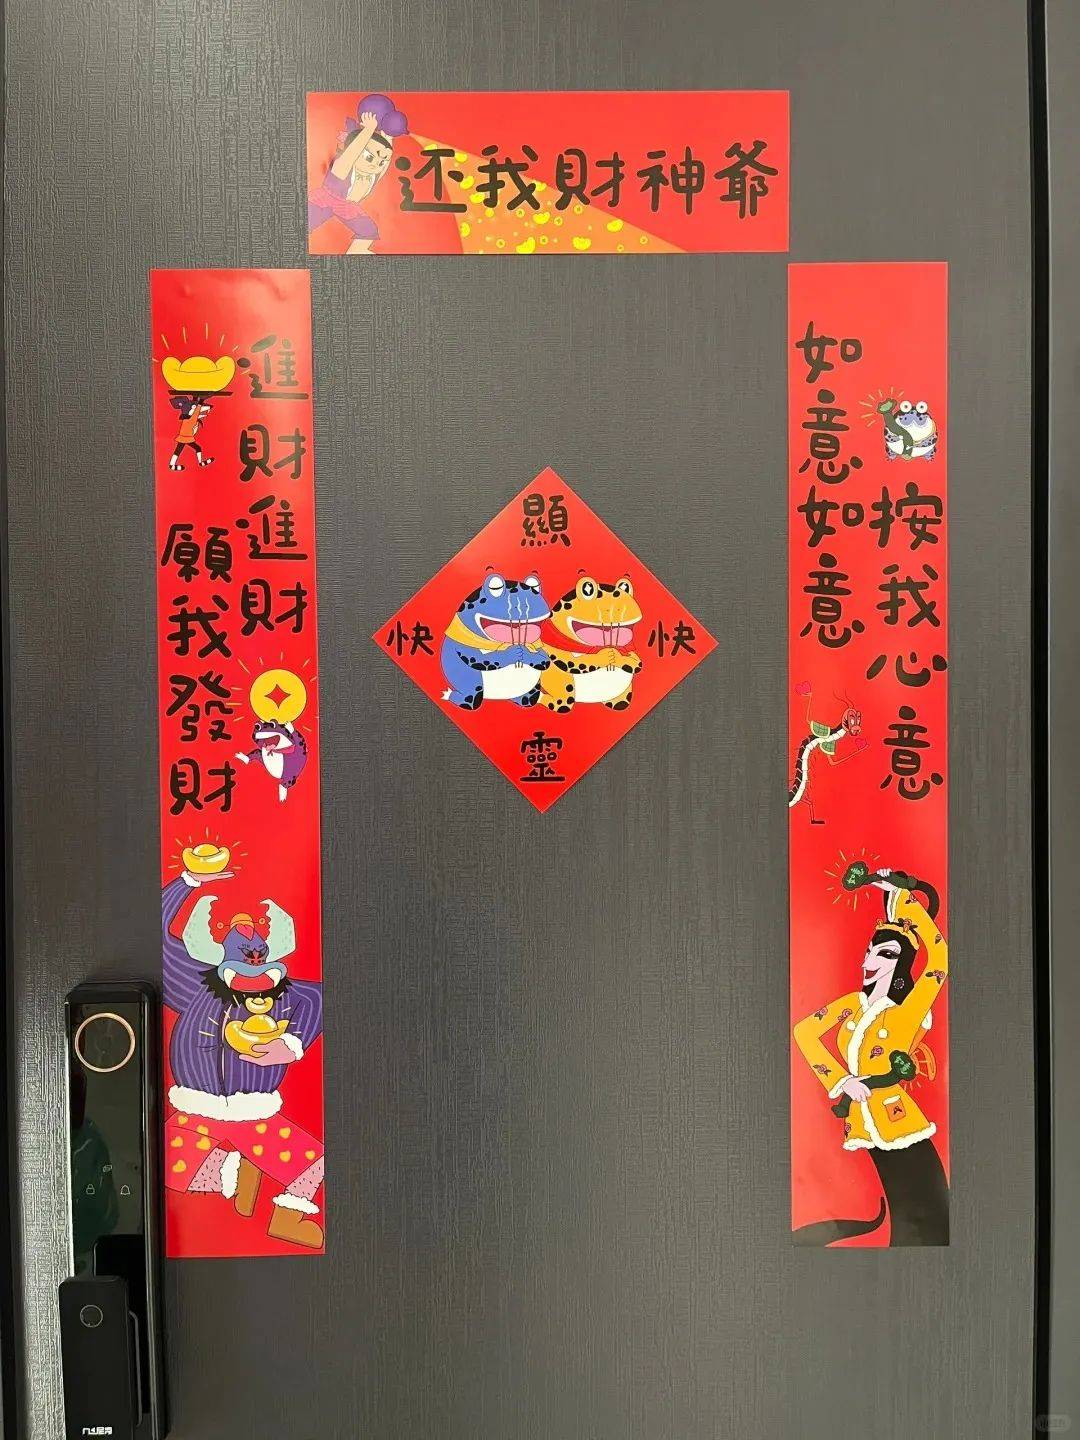 还我財神爺
如意如意
按我心意
進財進財
願我發財
顯
快 快
靈